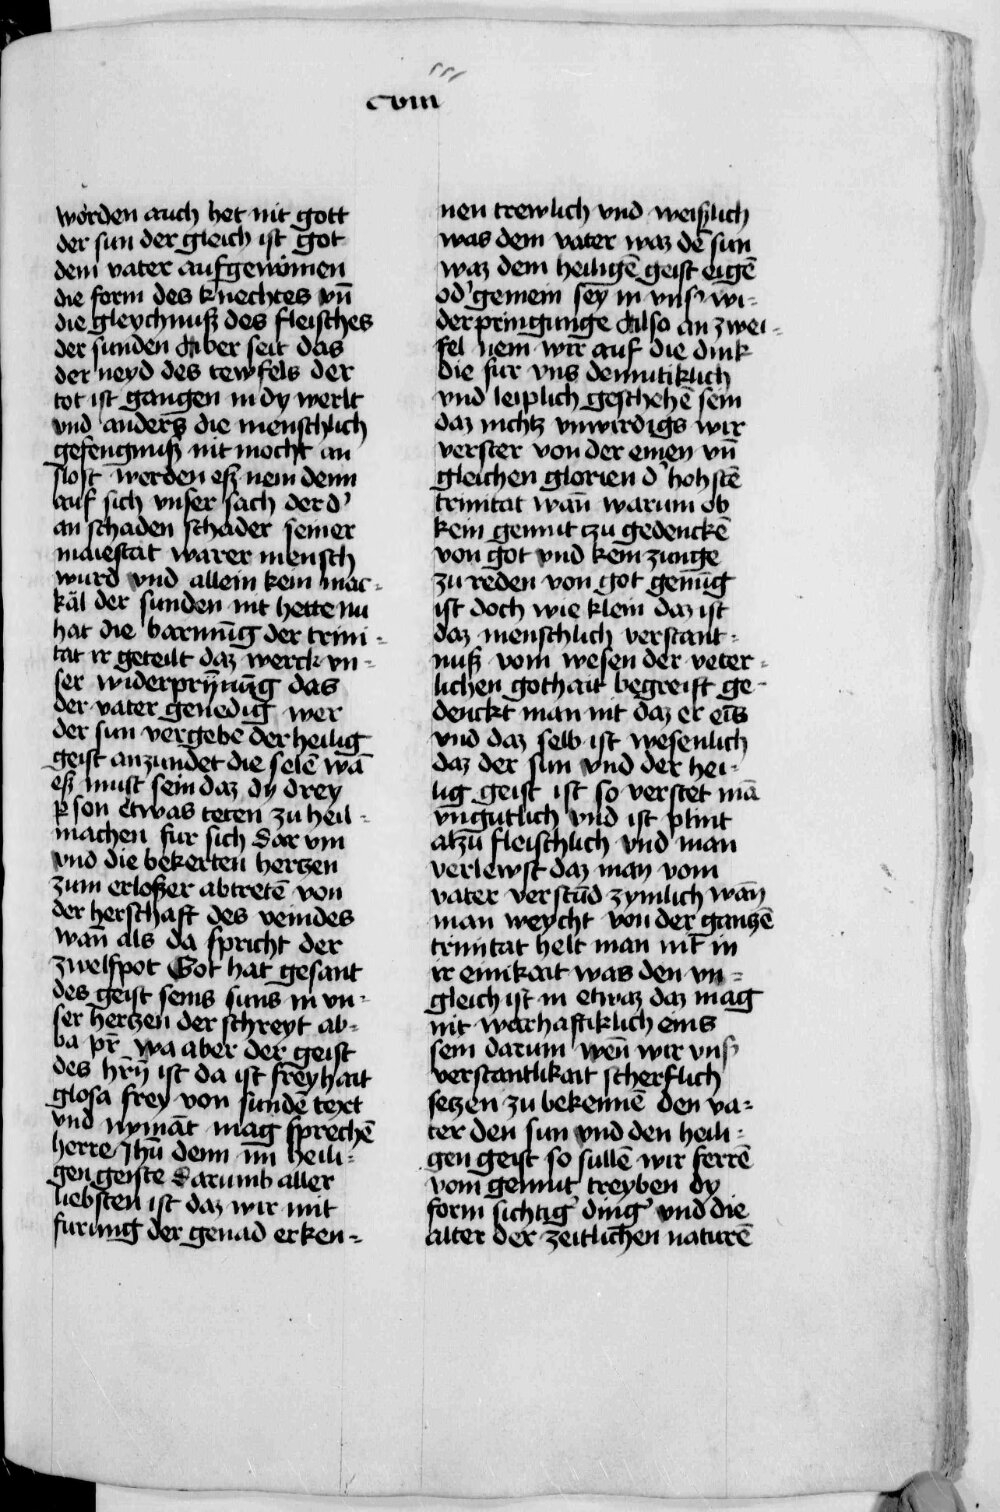 cviii
worden auch het nit gott
der sun der gleich ist got
dem vater aufgenomen
die form des knechtes vn̄
die gleychnuß des fleisches
der sunden Aber seit das
der neyd des tewfels der
tot ist gangen in dy werlt
vnd anders die menschlich
gefengnuß nit mocht an
slost werden eß nem denn
auf sich vnser sach der d'
an schaden schader seiner
maiestat warer mensch
wurd vnd allein kein mac-
kal der sunden nit hette nu
hat die barmūg der trini-
tat ir geteilt daz werck vn-
ser widerprīnūg das
der vater genedig wer
der sun vergebe der heilig
geist anzundet die selē wā
eß must sein daz dy drey
ꝑson etwas teten zu heil-
machen fur sich dar vm
vnd die bekerten hertzen
zum erloßer abtretē von
der herschaft des veindes
wan̄ als da spricht der
zwelfpot Got hat gesant
des geist seins suns in vn-
ser hertzen der schreyt ab-
ba pr̄ wa aber der geist
des hr̄n ist da ist freyhait
glosa frey von sundē text
vnd nymāt mag sprechē
herre Jhū denn im heili-
gen geiste darumb aller
liebsten ist daz wir mit
furung der genad erken-
nen trewlich vnd weißlich
was dem vater waz dē sun
waz dem heiligē geist eigē
od' gemein sey in vns' wi-
derpringunge Also an zwei-
fel nem wir auf die dink
die fur vns demutiklich
vnd leiplich geschehē sein
daz nichtz vnwirdigs wir
verster von der einen vn̄
gleichen glorien d' hohstē
trinitat wan̄ warum ob
kein gemut czu gedenckē
von got vnd kein zunge
zu reden von got genūg
ist doch wie klein daz ist
daz menschlich verstant-
nuß vom wesen der veter-
lichen gothait begreift ge-
denckt man nit daz er eīs
vnd daz selb ist wesenlich
daz der sun vnd der hei-
lig geist ist so verstet mā
vngutlich vnd ist plint
alzū fleischlich vnd man
verlewst daz man vom
vater verstūd zymlich wan̄
man weycht von der gantzē
trinitat helt man nit in
ir einikait was den vn-
gleich ist in etwaz daz mag
nit warhaftiklich eins
sein darum wen̄ wir vns'
verstantlikait scherflich
setzen zu bekennē den va-
ter den sun vnd den heili-
gen geist so sullē wir ferrē
vom gemut treyben dy
form sichtig' ding' vnd die
alter der zeitlichen naturē